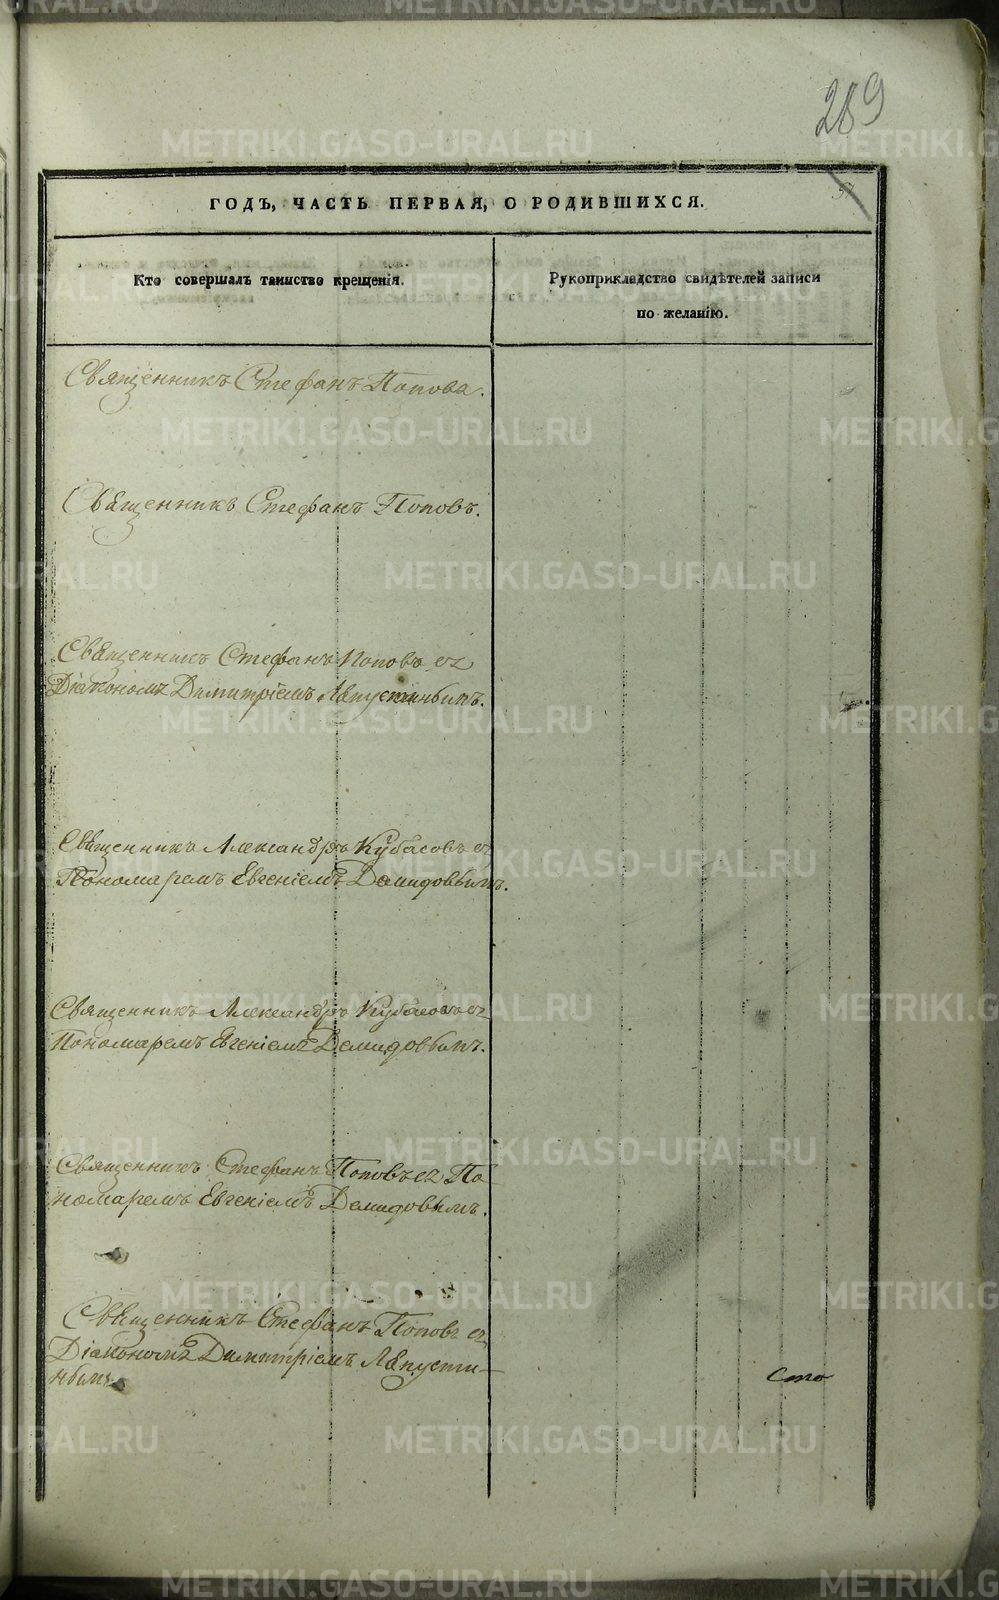 METRIKI.GASO-URAL.RU
289
57
ГОДЪ, ЧАСТЬ ПЕРВАЯ, О РОДИВШИХСЯ.
Кто совершалъ таинство крещенія.
Рукоприкладство свидѣтелей записи
по желанію.
Священникъ Стефанъ Попова.
Священникъ Стефанъ Поповъ.
Священникъ Стефанъ Поповъ съ
Діакономъ Димитріемъ Августинымъ.
Священникъ Александръ Кубасовъ съ
Пономаремъ Евгеніемъ Демидовымъ.
Священникъ Александръ Кубасовъ съ
Пономаремъ Евгеніемъ Демидовымъ.
Священникъ Стефанъ Поповъ съ По
номаремъ Евгеніемъ Демидовымъ.
Священникъ Стефанъ Поповъ съ
Діакономъ Димитріемъ Августи-
нымъ